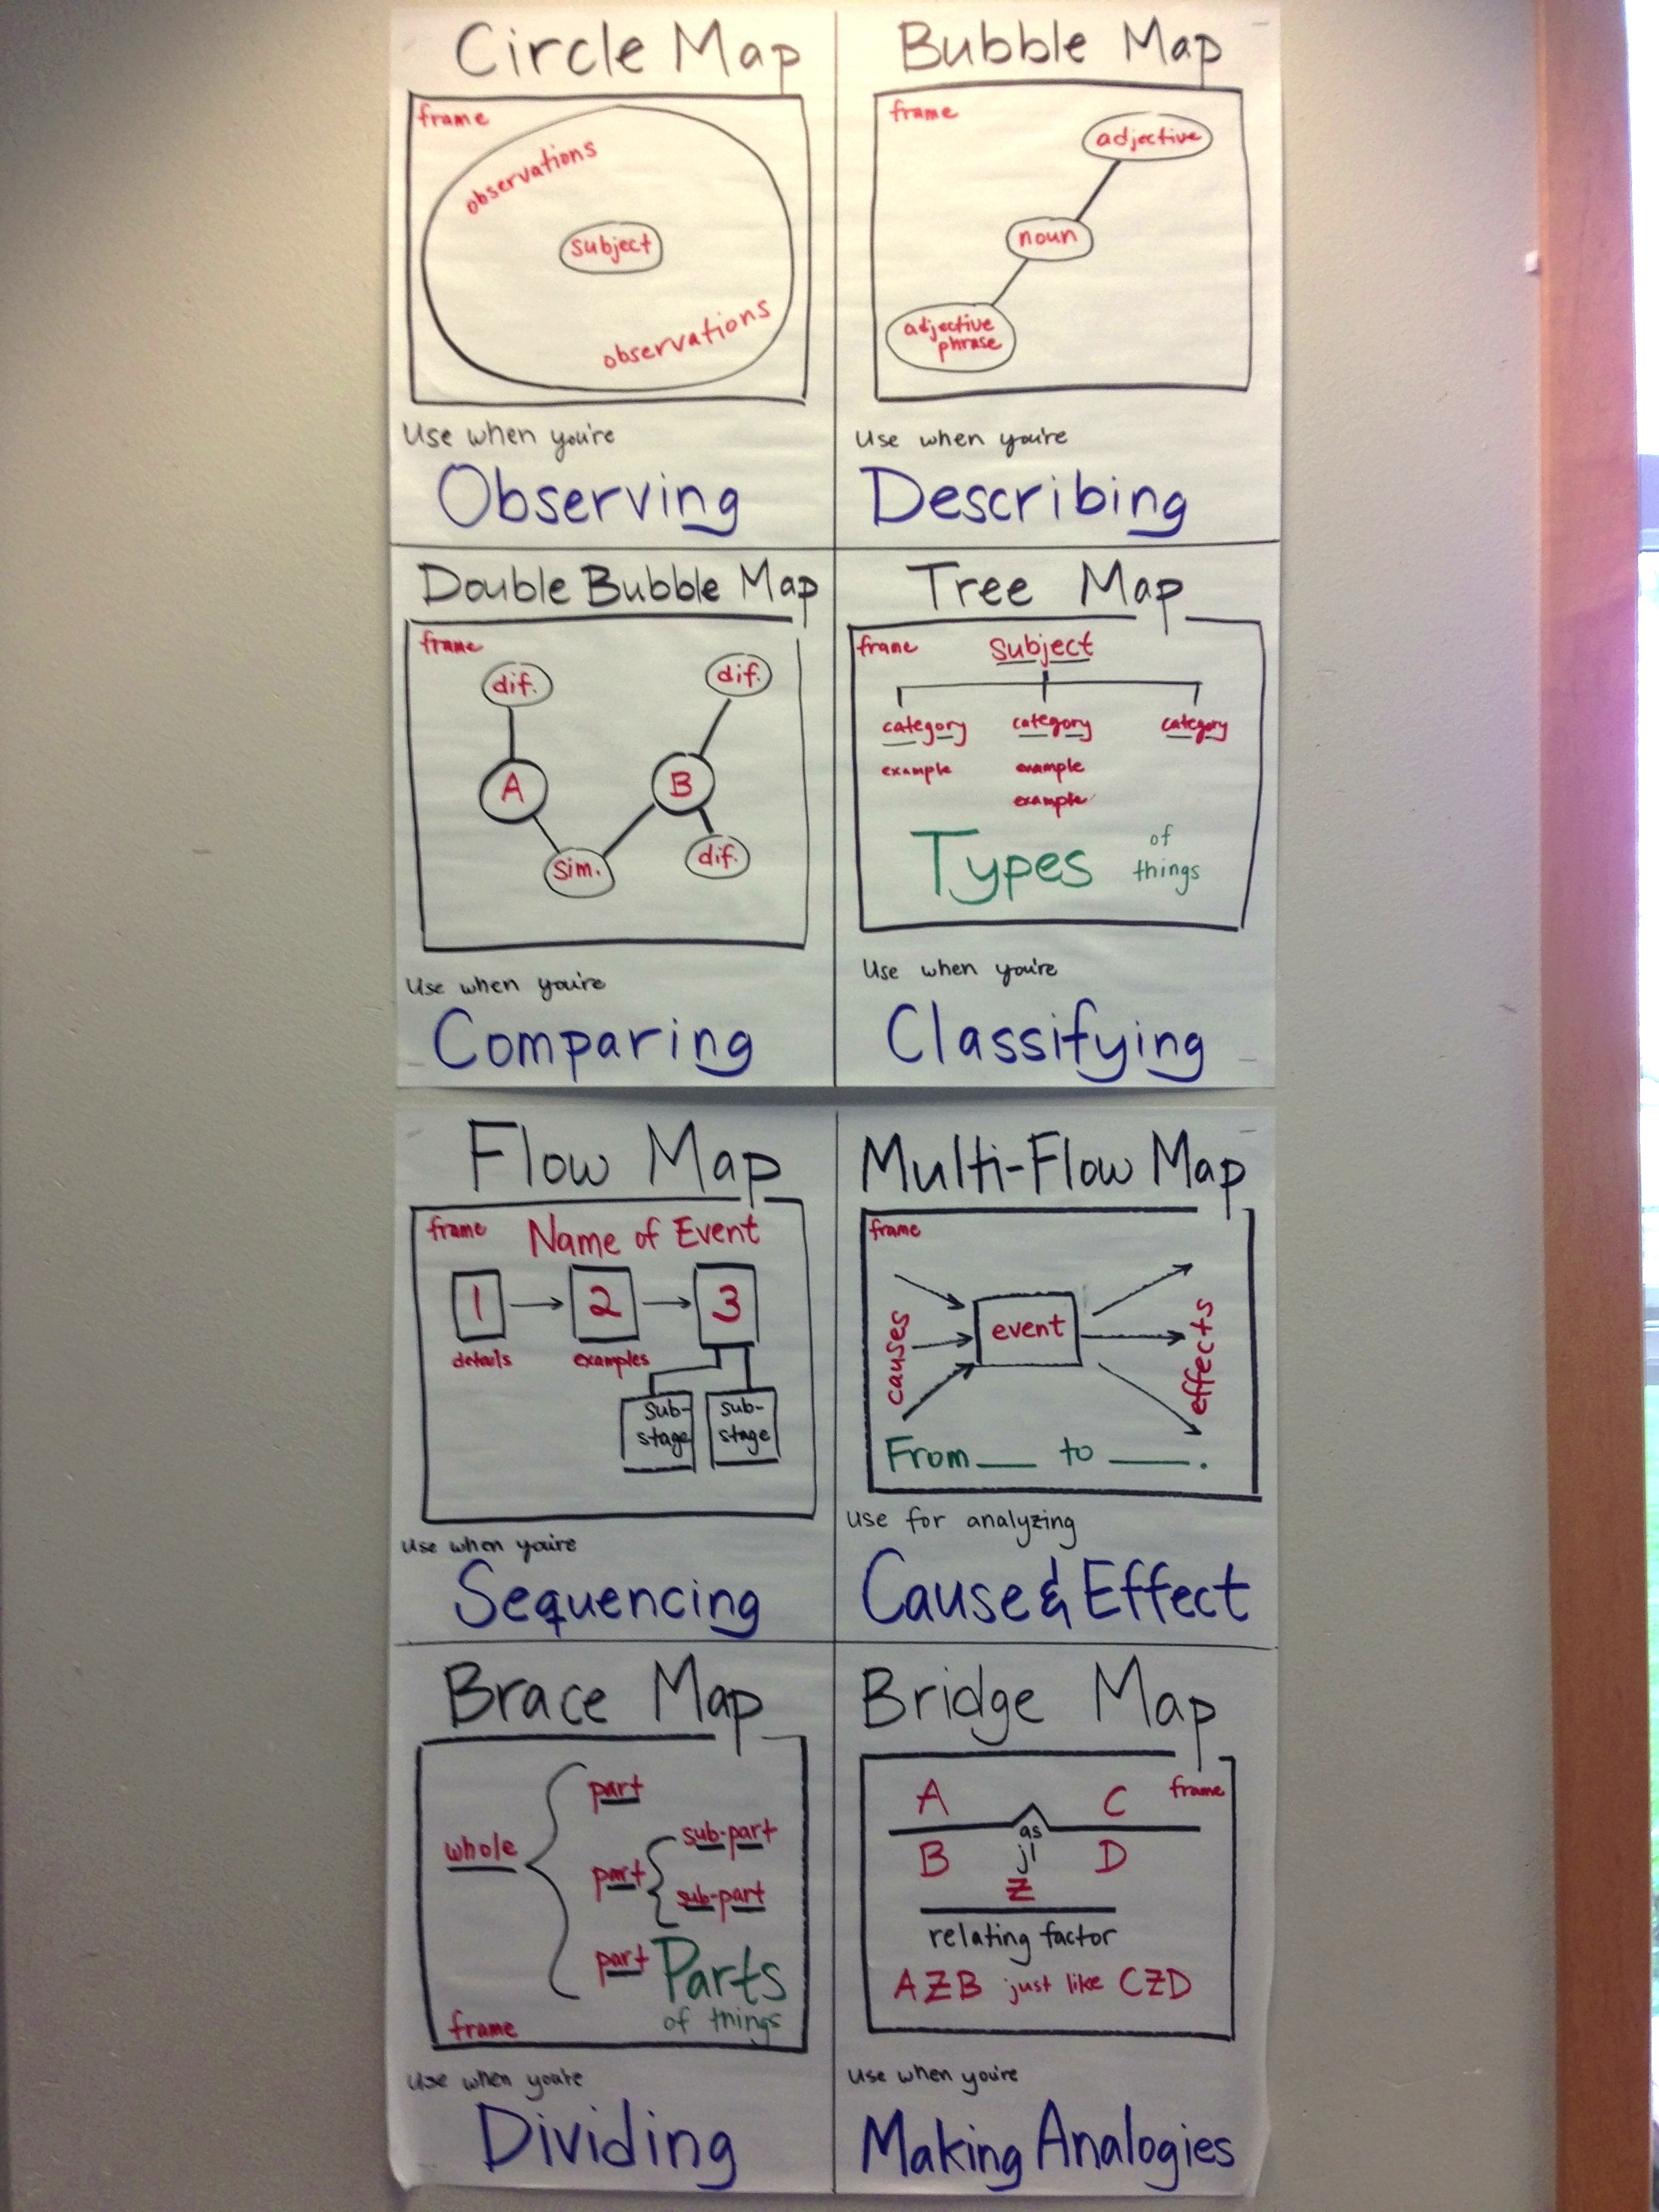 Circle Map
frame
observations
subject
observations
Use when you're
Observing
Bubble Map
frame
adjective
noun
adjective
phrase
Use when you're
Describing
Double Bubble Map
frame
dif.
dif.
A
B
sim.
dif.
Use when you're
Comparing
Tree Map
frame
subject
category category category
example example
example
Types of
things
Use when you're
Classifying
Flow Map
frame Name of Event
1 2 3
details examples
sub-
stage
sub-
stage
Use when you're
Sequencing
Multi-Flow Map
frame
causes
event
effects
From ___ to ___.
Use for analyzing
Cause & Effect
Brace Map
whole
part
part
sub-part
sub-part
part
Parts
of things
frame
Use when you're
Dividing
Bridge Map
frame
A C
as
B jl D
Z
relating factor
AZB just like CZD
Use when you're
Making Analogies